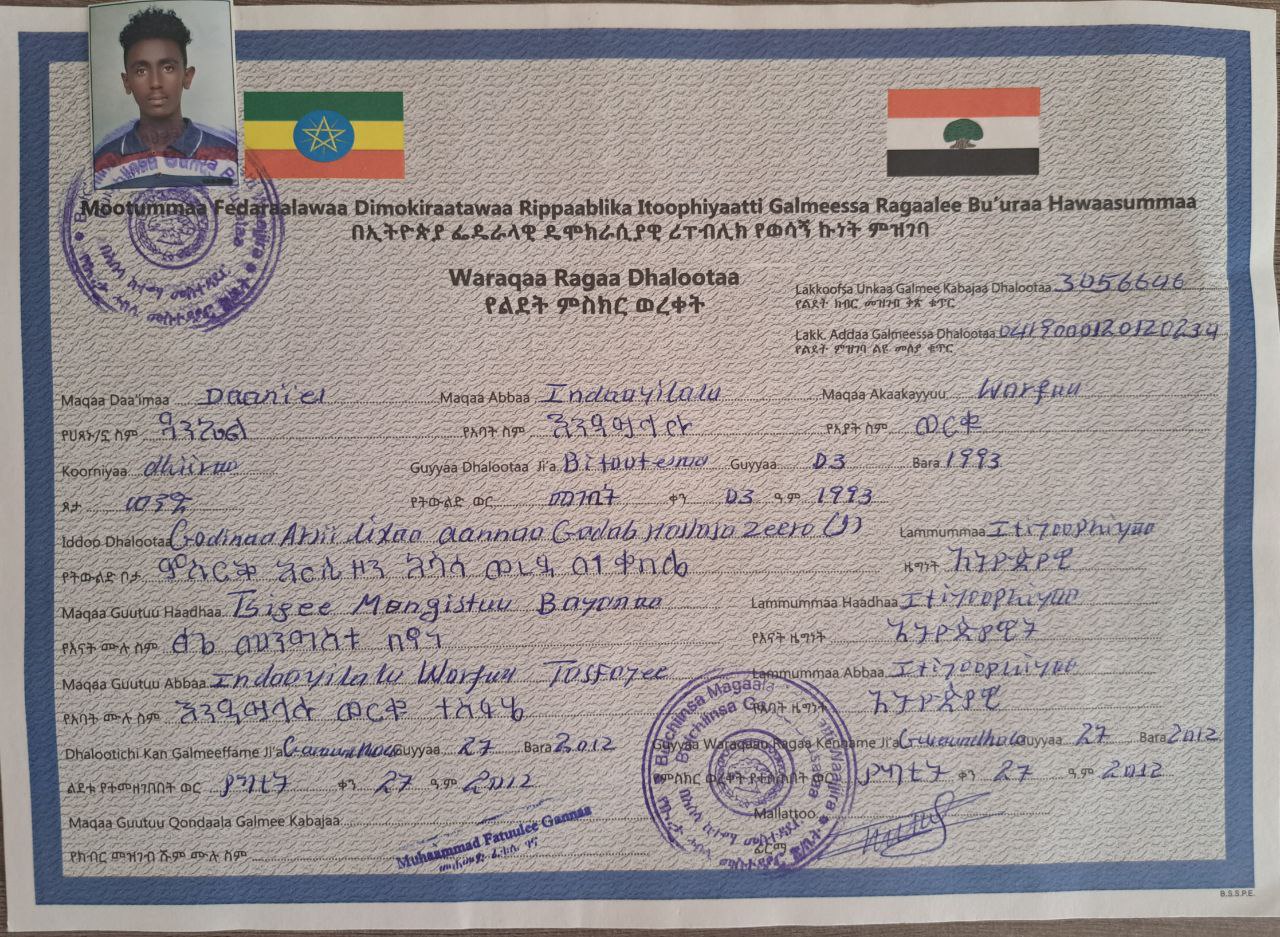 Mootummaa Fedaraalawaa Dimokiraatawaa Rippaablika Itoophiyaatti Galmeessa Ragaalee Bu'uraa Hawaasummaa
በኢትዮጵያ ፌዴራላዊ ዴሞክራሲያዊ ሪፐብሊክ የወሳኝ ኩነት ምዝገባ
Waraqaa Ragaa Dhalootaa
የልደት ምስክር ወረቀት
Lakkoofsa Unkaa Galmee Kabajaa Dhalootaa 3056646
የልደት ክብር መዝገብ ቅጽ ቁጥር
Lakk. Addaa Galmeessa Dhalootaa 0419000120120234
የልደት ምዝገባ ልዩ መለያ ቁጥር
Maqaa Daa'imaa Daani'el Maqaa Abbaa Indaayilalu Maqaa Akaakayyuu Warfuu
የህጻኑ/ኗ ስም ዳንኤል የአባት ስም እንዳይላሉ የአያት ስም ወርቁ
Koorniyaa dhiiraa Guyyaa Dhalootaa Ji'a Bitootessa Guyyaa 03 Bara 1993
ጾታ ወንድ የትውልድ ወር መጋቢት ቀን 03 ዓ.ም 1993
Iddoo Dhalootaa Godinaa Arsii Lixaa aannaa Gadab Hasaasa zeero (1) Lammummaa Itiyoophiyaa
የትውልድ ቦታ ምዕራብ አርሲ ዞን አሳሳ ወረዳ 01 ቀበሌ ዜግነት ኢትዮጵያዊ
Maqaa Guutuu Haadhaa Tsigee Mangistuu Bayanaa Lammummaa Haadhaa Itiyoophiyaa
የእናት ሙሉ ስም ፅጌ መንግስቱ በየነ የእናት ዜግነት ኢትዮጵያዊት
Maqaa Guutuu Abbaa Indaayilalu Warfuu Tasfayee Lammummaa Abbaa Itiyoophiyaa
የአባት ሙሉ ስም እንዳይላሉ ወርቁ ተስፋዬ የአባት ዜግነት ኢትዮጵያዊ
Dhalootichi Kan Galmeeffame Ji'a Guyyaa 27 Bara 2012 Guyyaa Waraqaan Ragaa Kenname Ji'a Guyyaa 27 Bara 2012
ልደቱ የተመዘገበበት ወር የካቲት ቀን 27 ዓ.ም 2012 የምስክር ወረቀት የተሰጠበት ወር የካቲት ቀን 27 ዓ.ም 2012
Maqaa Guutuu Qondaala Galmee Kabajaa Mallattoo
የክብር መዝገብ ሹም ሙሉ ስም ፊርማ
Muhaammad Fatuulee Gannaa
Buchiinsa Magaala
B.S.S.P.E.